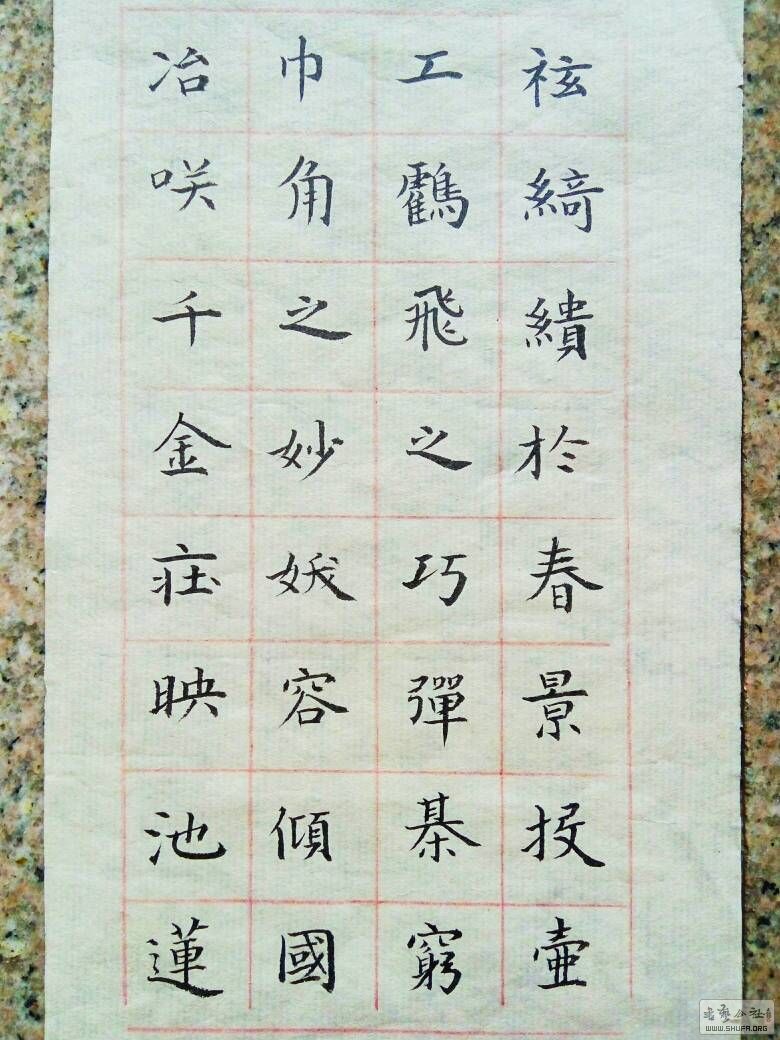 祾綺繢於春景投壺
工鸖飛之巧彈棊窮
巾角之妙妖容傾國
冶咲千金莊映池蓮
书艺公社
WWW.SHUFA.ORG